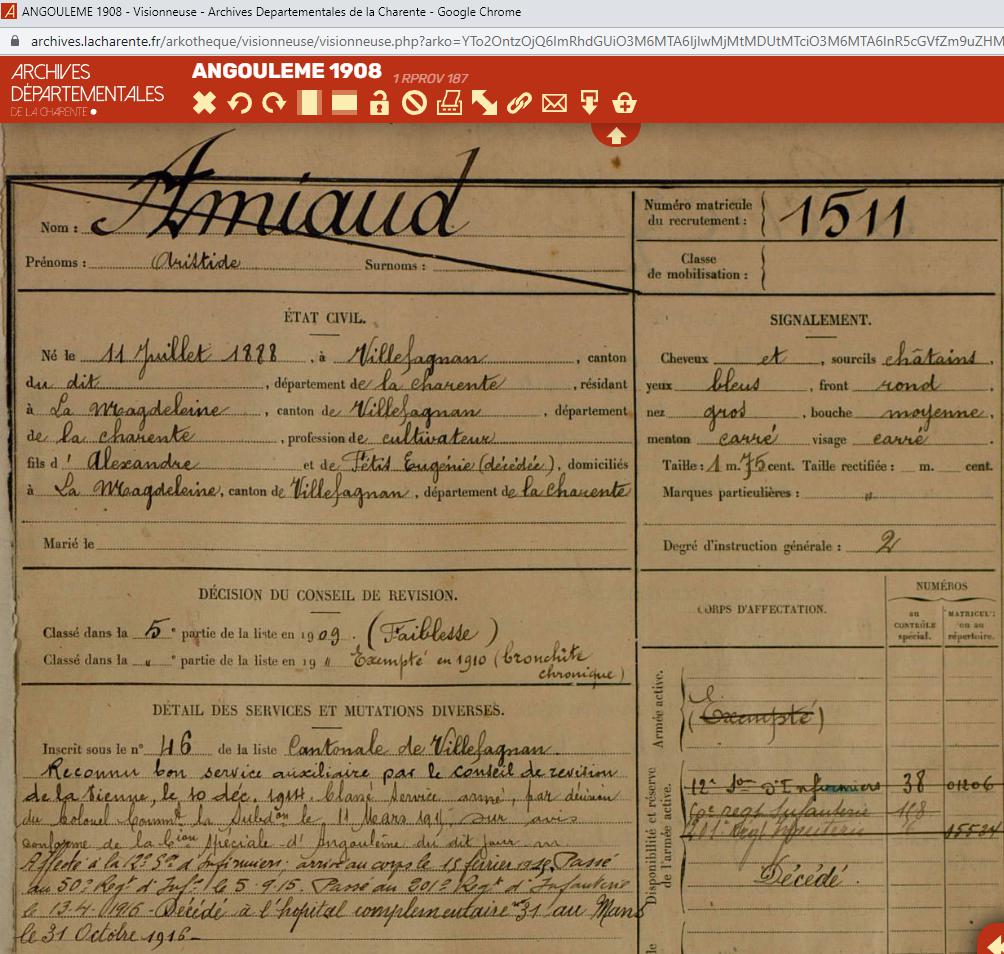 ANGOULEME 1908 - Visionneuse - Archives Departementales de la Charente - Google Chrome
archives.lacharente.fr/arkotheque/visionneuse/visionneuse.php?arko=YTo2OntzOjQ6ImRhdGUiO3M6MTA6IjIwMjMtMDUtMTciO3M6MTA6InR5cGVfZm9uZHM
ARCHIVES
DÉPARTEMENTALES
DE LA CHARENTE
ANGOULEME 1908 1 RPROV 187
Nom : Amiaud
Prénoms : Aristide Surnoms :
Numéro matricule du recrutement : 1511
Classe de mobilisation :
ÉTAT CIVIL.
Né le 11 Juillet 1888, à Villefagnan, canton
du dit, département de la charente, résidant
à La Magdeleine, canton de Villefagnan, département
de la charente, profession de cultivateur
fils d' Alexandre et de Fétis Eugénie (décédée), domiciliés
à La Magdeleine, canton de Villefagnan, département de la charente
Marié le
SIGNALEMENT.
Cheveux et, sourcils châtains,
yeux bleus, front rond
nez gros, bouche moyenne,
menton carré visage carré.
Taille : 1 m. 75 cent. Taille rectifiée : m. cent.
Marques particulières : "
Degré d'instruction générale : 2
DÉCISION DU CONSEIL DE REVISION.
Classé dans la 5e partie de la liste en 1909. (Faiblesse)
Classé dans la " e partie de la liste en 19 " Exempté en 1910 (bronchite
chronique)
DÉTAIL DES SERVICES ET MUTATIONS DIVERSES.
Inscrit sous le n° 46 de la liste Cantonale de Villefagnan.
Reconnu bon service auxiliaire par le conseil de revision
de la Vienne, le 10 déc. 1914. Classé Service armé, par décision
du Colonel Commt la Subdon le 11 Mars sur avis
conforme de la Con Spéciale d'Angoulême du dit jour
Affecté à la 12e Son d'infirmiers; arrivé au corps le 15 février Passé
au 50e Regt d'Infie le 5-9-15. Passé au 201e Regt d'Infanterie
le 13-4-1916 - Décédé à l'hopital complementaire n° 31 au Mans
le 31 Octobre 1916 -
CORPS D'AFFECTATION.
NUMÉROS
au CONTRÔLE spécial.
MATRICUL: ou au répertoire.
Armée active.
(Exempté)
Disponibilité et réserve de l'armée active.
12e Son d'Infirmiers 38 01206
regt Infanterie
201e Regt Infanterie 15534
Décédé.